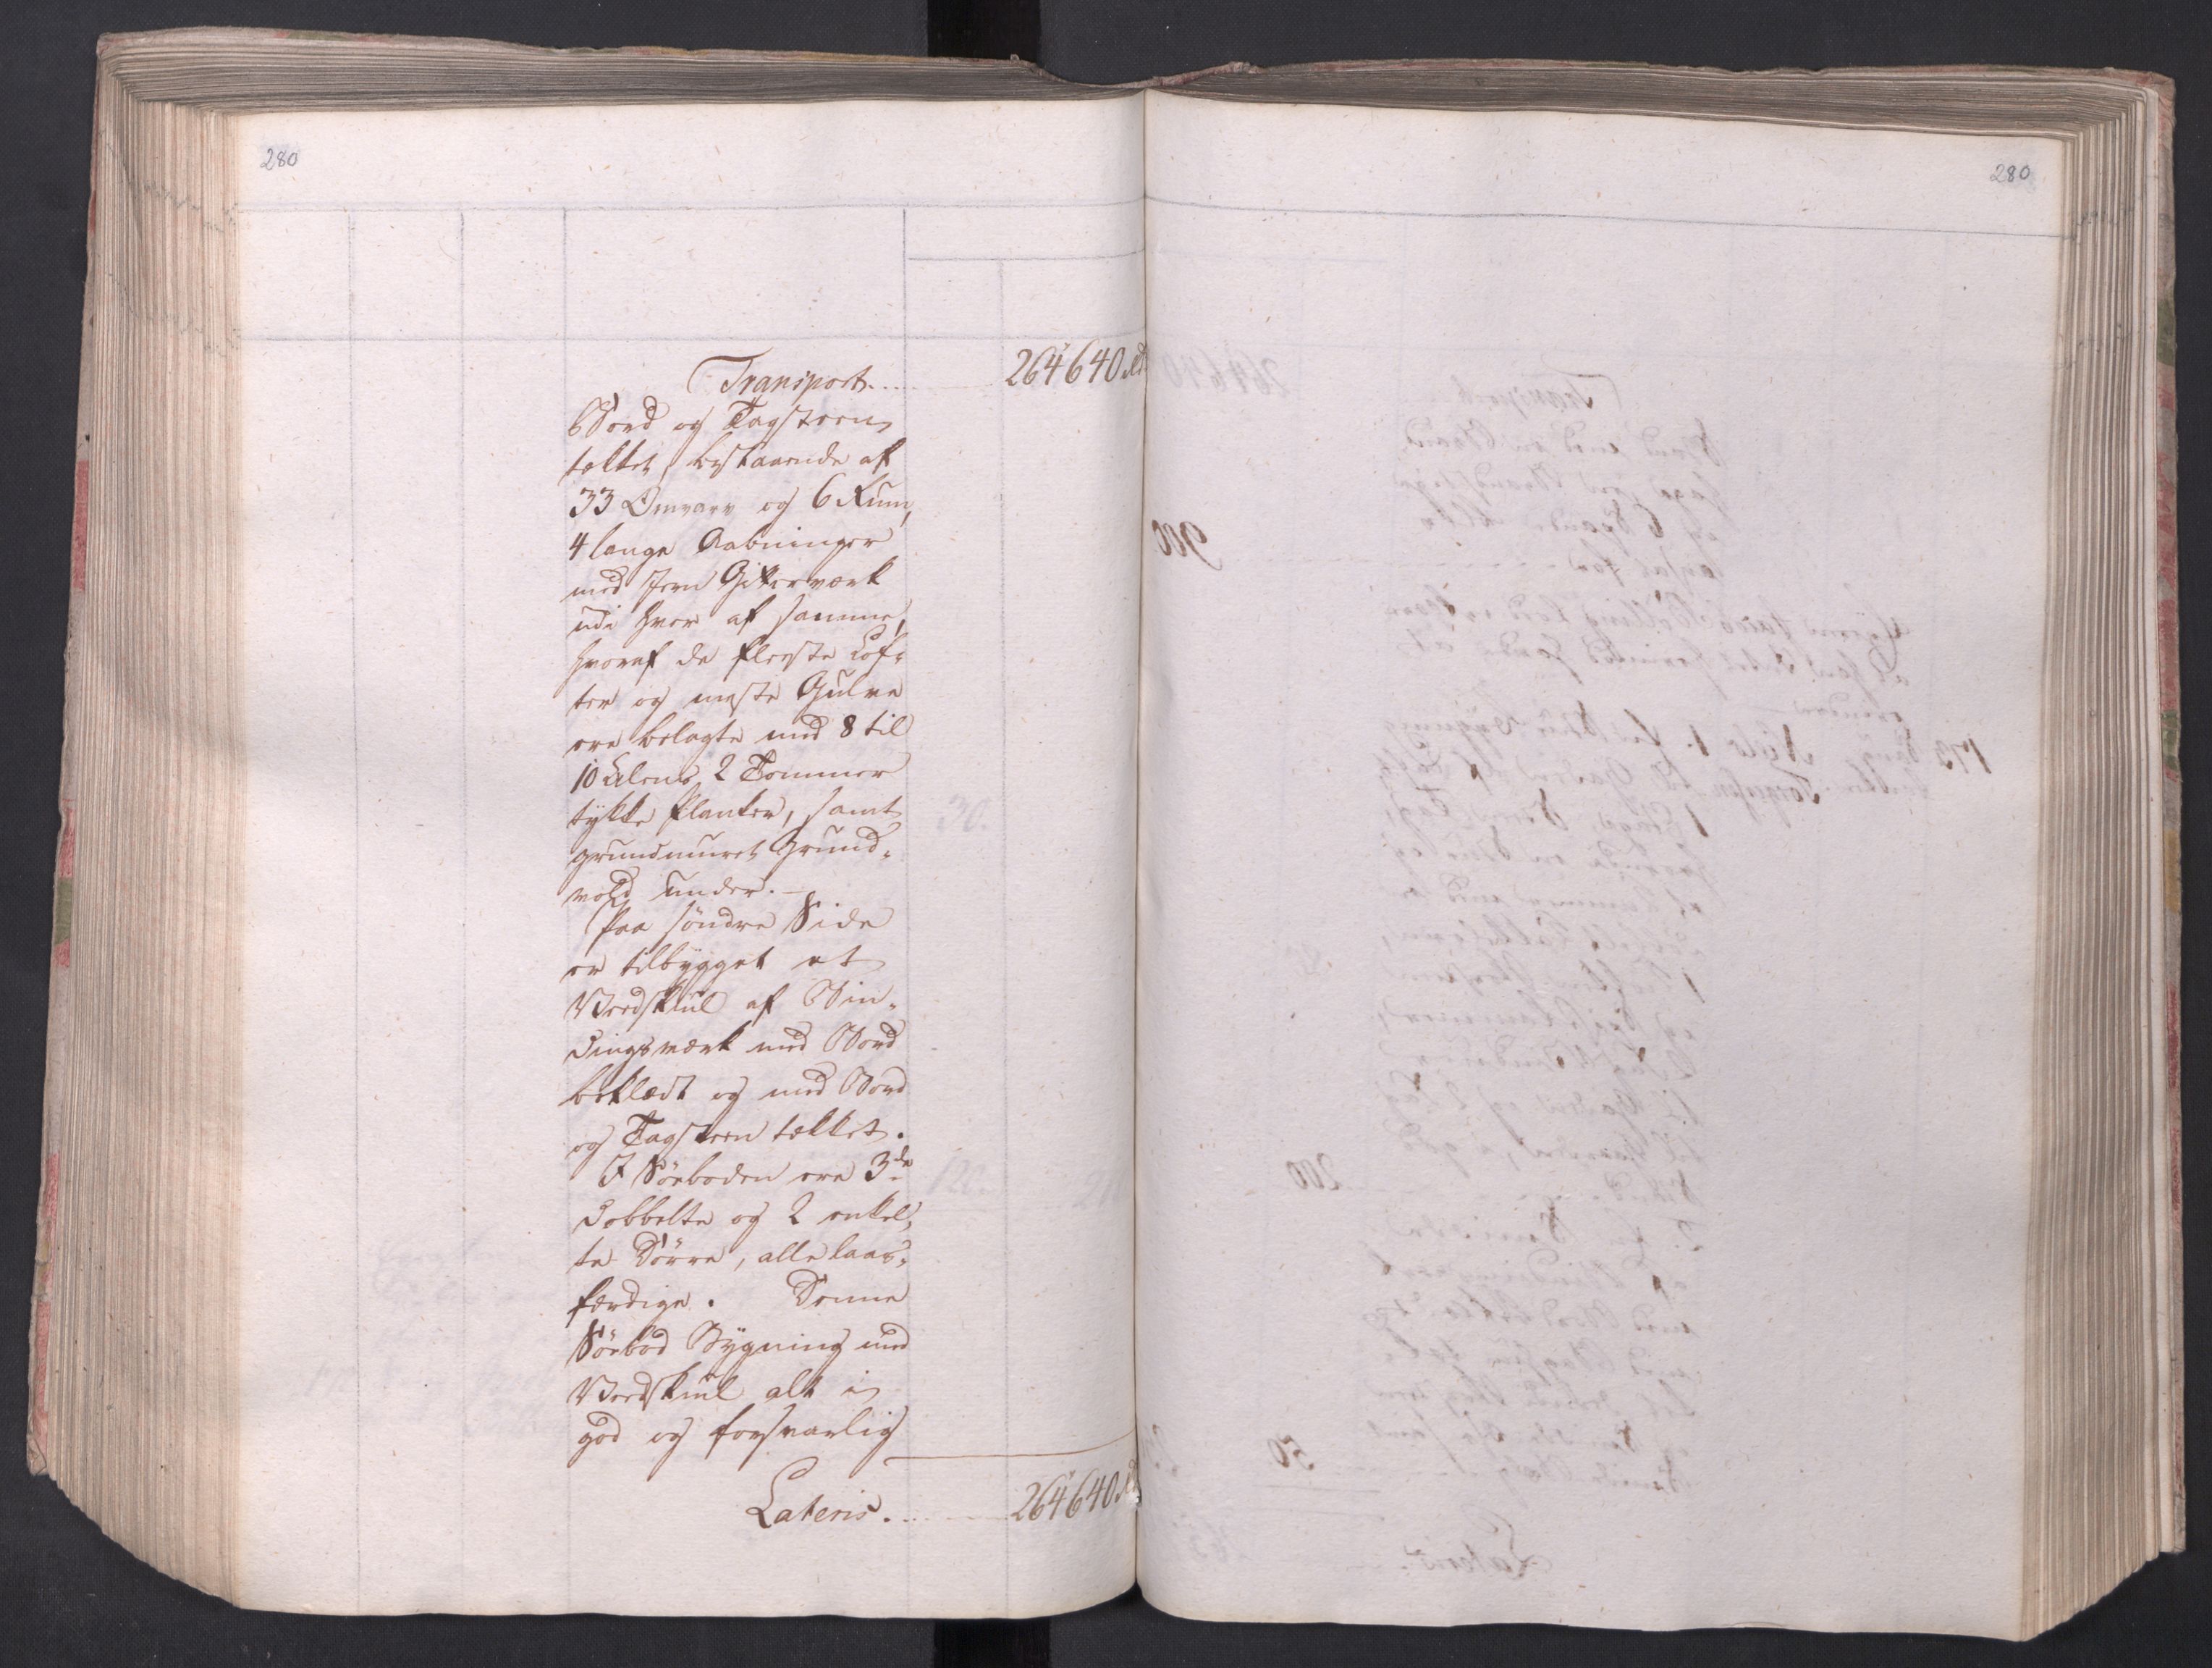 280
280
Transport... 264640 Rd
Bord og Tagsteen
tækket, bestaaende af
33 Omvarv og 6 Rum,
4 lange Aabninger
med Jern Gitterværk
udi hver af samme,
hvoraf de fleeste Lof-
ter og meste Gulve
ere belagte med 8 til
10 Alens 2 Tommer
tykke Planker, samt
grundmuret Grund-
vold under. —
Paa söndre Side
er tilbygget et
Vedskiul af Bin-
dingsværk med Bord
beklædt og med Bord
og Tagsteen tækket.
I Söeboden ere 3de
dobbelte og 2 enkel-
te Dörre, alle laas-
færdige. Denne
Söebod Bygning med
Vedskiul alt i
god og forsvarlig
Lateris... 264640 Rd